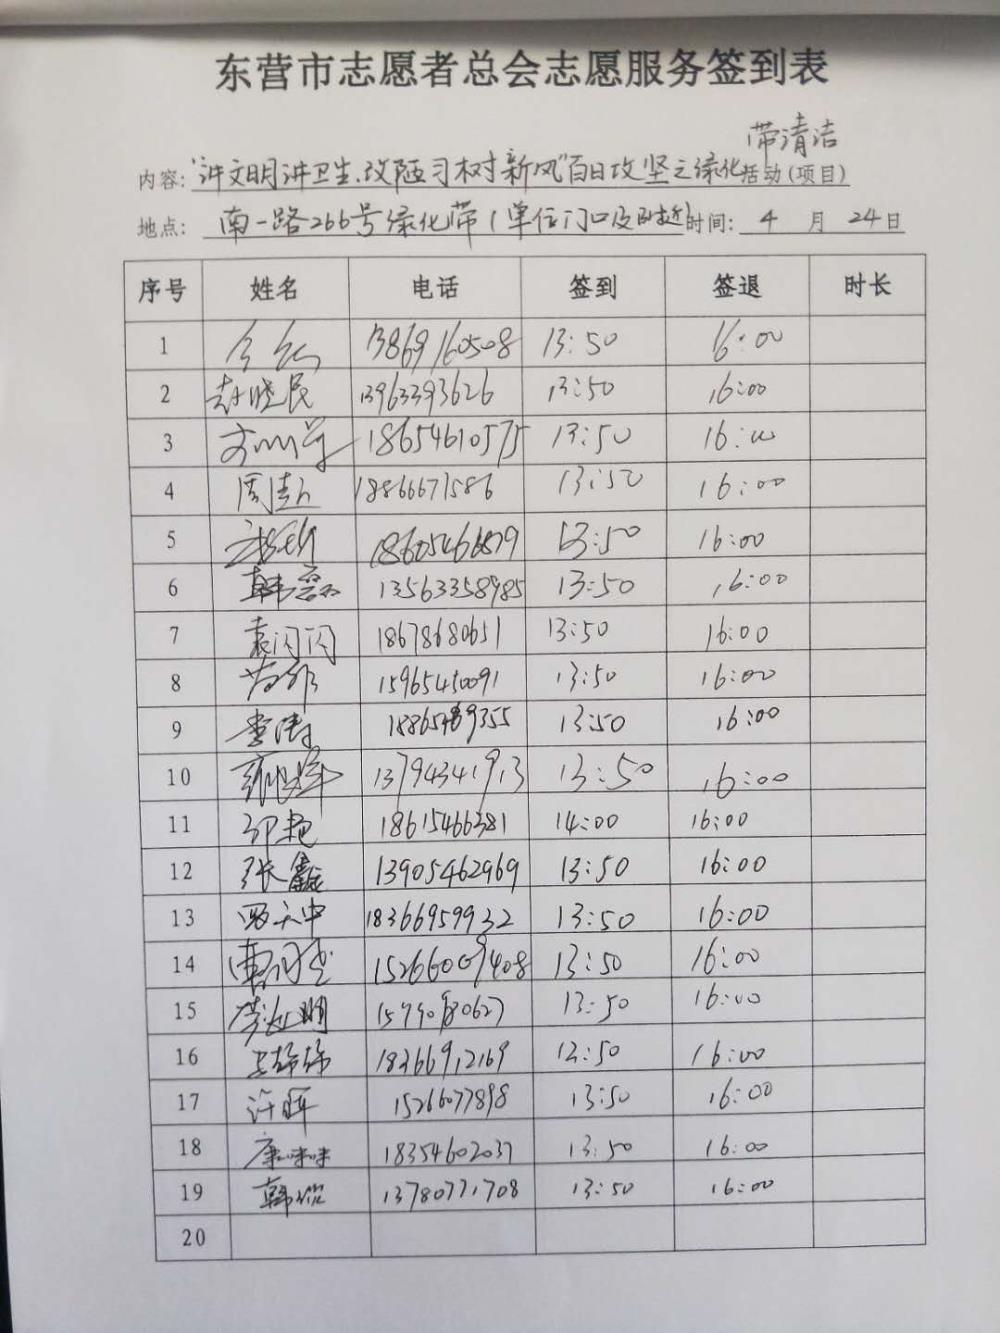 东营市志愿者总会志愿服务签到表
带清洁
内容:"讲文明讲卫生、改陋习树新风"百日攻坚之绿化活动(项目)
地点: 南一路266号绿化带(单位门口及附近 时间: 4 月 24 日
序号 姓名 电话 签到 签退 时长
1 13869160508 13:50 16:00
2 赵晓民 13963393626 13:50 16:00
3 18654610575 13:50 16:00
4 18866671586 13:50 16:00
5 13:50 16:00
6 韩磊 13563358985 13:50 16:00
7 袁闪闪 18678680651 13:50 16:00
8 15965450091 13:50 16:00
9 李涛 13:50 16:00
10 13794341913 13:50 16:00
11 邵艳 18615466381 14:00 16:00
12 张鑫 13905462969 13:50 16:00
13 18366959932 13:50 16:00
14 15266009408 13:50 16:00
15 13:50 16:00
16 18366912169 13:50 16:00
17 许晖 15266077898 13:50 16:00
18 康咪咪 18354602037 13:50 16:00
19 13780771708 13:50 16:00
20